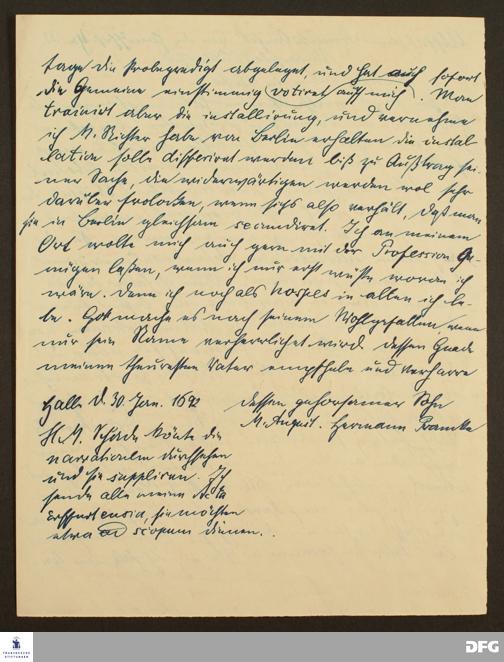 tage die Probepredigt abgeleget, und hat auch sofort
die Gemeine einstimmig votiret auff mich. Man
trainirt aber die installirung, und vernehme
ich M. Richter habe von Berlin erhalten die instal-
lation solle differiret werden biß zu Außtrag sei-
ner Sache, die widerwärtigen werden wol sehr
darüber froloken, wenn sichs also verhält, daß man
sie in Berlin gleichsam secundiret. Ich an meinem
Ort wolte mich auch gern mit der Profession be-
nügen laßen, wenn ich nur erst wüste woran ich
wäre. Denn ich noch als hospes in allen ich le-
be. Gott mache es nach seinem Wohlgefallen, wenn
nur sein Name verherrlichet wird. dessen Gnade
meinen theuresten Vater empfehle und verharre
Halle d. 30. Jan. 1692
dessen gehorsamer Sohn
M. August. Hermann Francke
H. M. Schade könte die
narrationem durchsehen
und sie suppliren. Ich
sende alle meine Acta
Erffurtensia, sie möchten
etwa ad scopum dienen.
FRANCKESCHE
STIFTUNGEN
DFG